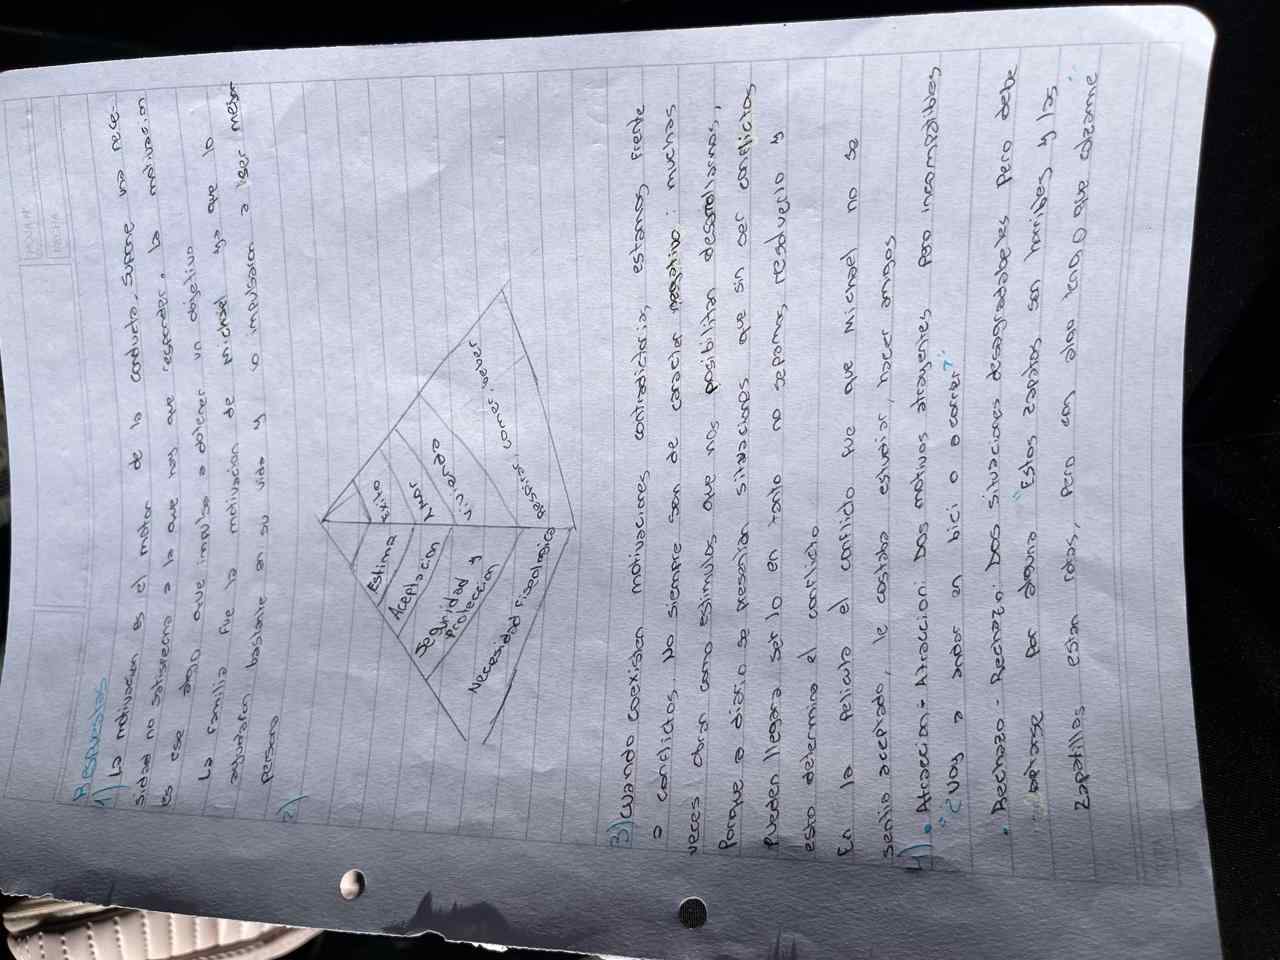 Respuestas
1) La motivacion es el motor de la conducta. Supone una nece-
sidad no satisfecha a la que hay que responder. La motivacion
es ese algo que impulsa a obtener un objetivo
La familia fue la motivacion de Michael ya que lo
ayudaron bastante en su vida y lo impulsaron a ser mejor
persona
2)
Exito
Estima
Amor
Aceptacion
Vivienda
Seguridad y
Proteccion
Respirar, comer, beber
Necesidad Fiseologica
3) Cuando coexisten motivaciones contradictoria, estamos frente
a conflictos. No siempre son de caracter negativo: muchas
veces obran como estimulos que nos posibilitan desarrollarnos,
Porque a diario se presentan situaciones que sin ser conflictos
pueden llegara ser lo en tanto no sepamos resolverlo y
esto determina el conflicto
En la pelicula el conflido fue que Michael no se
sentia aceptado, le costaba estudiar, hacer amigos
4) • Atraccion - Atraccion: Dos motivos atrayentes pero incompatibles
"¿Voy a andar en bici o a correr?"
• Rechazo - Rechazo: Dos situaciones desagradabeles pero debe
optarse por alguna "Estos zapatos son horribes y las
zapatillas estan rotas, pero con algo tengo que calzarme"